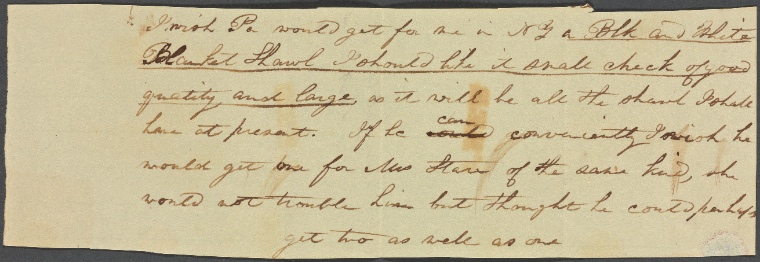 I wish Pa would get for me in N Y a Blk and White
Blanket Shawl I should like it small check of good
quality, and large, as it will be all the shawl I shall
have at present. If he can could conveniently I wish he
would get one for Mrs Starr of the same kind, she
would not trouble him but thought he could perhaps
get two as well as one